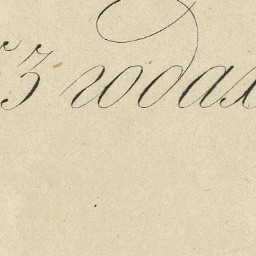 3 годах